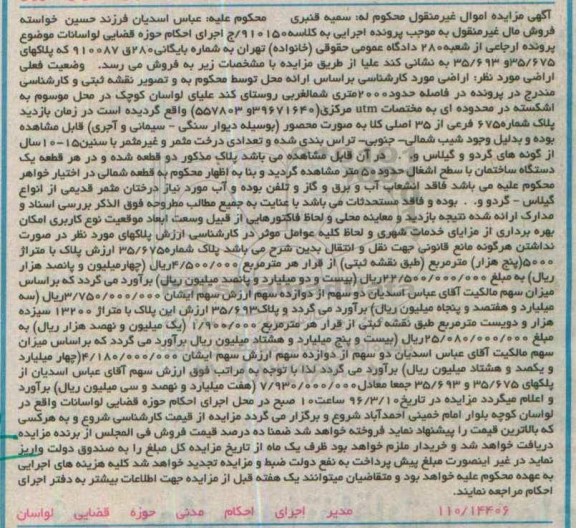 آگهی مزایده اموال غیرمنقول محکوم له: سمیه قنبری محکوم علیه: عباس اسدیان فرزند حسین خواسته
فروش مال غیرمنقول به موجب پرونده اجرایی به کلاسه۹۱۰۱۵۰/ج اجرای احکام حوزه قضایی لواسانات موضوع
پرونده ارجاعی از شعبه۲۸۰ دادگاه عمومی حقوقی (خانواده) تهران به شماره بایگانی۲۸۰ق ۹۱۰۰۸۷ که پلاکهای
۳۵/۶۷۵و ۳۵/۶۹۳ به نشانی کند علیا از طریق مزایده با مشخصات زیر به فروش می رسد. وضعیت فعلی
اراضی مورد نظر: اراضی مورد کارشناسی براساس ارائه محل توسط محکوم به و تصویر نقشه ثبتی و کارشناسی
مندرج در پرونده در فاصله حدود۲۰۰۰متری شمالغربی روستای کند علیای لواسان کوچک در محل موسوم به
اشکسته در محدوده ای به مختصات utm مرکزی(۳۹۶۷۱۶۴۰و ۵۵۷۸۰۳) واقع گردیده است در زمان بازدید
پلاک شماره۶۷۵ فرعی از ۳۵ اصلی کلا به صورت محصور (بوسیله دیوار سنگی - سیمانی و آجری) قابل مشاهده
بوده و بدلیل وجود شیب شمالی- جنوبی- تراس بندی شده و تعدادی درخت مثمر و غیرمثمر با سنین۱۵-۱۰سال
از گونه های گردو و گیلاس و. . . در آن قابل مشاهده می باشد پلاک مذکور دو قطعه شده و در هر قطعه یک
دستگاه ساختمان با سطح اشغال حدود ۵۰ متر مشاهده گردید و بنا به اظهار محکوم به قطعه شمالی در اختیار خواهر
محکوم علیه می باشد فاقد انشعاب آب و برق و گاز و تلفن بوده و آب مورد نیاز درختان مثمر قدیمی از انواع
گیلاس - گردو و. . بوده و فاقد مستحدثات می باشد با عنایت به جمیع مطالب مطروحه فوق الذکر بررسی اسناد و
مدارک ارائه شده نتیجه بازدید و معاینه محلی و لحاظ فاکتورهایی از قبیل وسعت ابعاد موقعیت نوع کاربری امکان
بهره برداری از مزایای خدمات شهری و لحاظ کلیه عوامل موثر در کارشناسی ارزش پلاکهای مورد نظر در صورت
نداشتن هرگونه مانع قانونی جهت نقل و انتقال بدین شرح می باشد پلاک شماره۳۵/۶۷۵ ارزش پلاک با متراژ
۵۰۰۰(پنج هزار) مترمربع (طبق نقشه ثبتی) از قرار هر مترمربع ۴/۵۰۰/۰۰۰ریال (چهارمیلیون و پانصد هزار
ریال) به مبلغ ۲۲/۵۰۰/۰۰۰/۰۰۰ریال (بیست و دو میلیارد و پانصد میلیون ریال) برآورد می گردد که براساس
میزان سهم مالکیت آقای عباس اسدیان دو سهم از دوازده سهم ارزش سهم ایشان ۳/۷۵۰/۰۰۰/۰۰۰ریال (سه
میلیارد و هفتصد و پنجاه میلیون ریال) برآورد می گردد و پلاک۳۵/۶۹۳ ارزش این پلاک با متراژ ۱۳۲۰۰ سیزده
هزار و دویست مترمربع طبق نقشه ثبتی از قرار هر مترمربع ۱/۹۰۰/۰۰۰ (یک میلیون و نهصد هزار ریال) به
مبلغ ۲۵/۰۸۰/۰۰۰/۰۰۰ریال (بیست و پنج میلیارد و هشتاد میلیون ریال برآورد می گردد که براساس میزان
سهم مالکیت آقای عباس اسدیان دو سهم از دوازده سهم ارزش سهم ایشان ۴/۱۸۰/۰۰۰/۰۰۰(چهار میلیارد
و یکصد و هشتاد میلیون ریال) برآورد می گردد لذا با توجه به مراتب فوق ارزش سهم آقای عباس اسدیان از
پلکهای ۳۵/۶۷۵ و ۳۵/۶۹۳ جمعا معادل۷/۹۳۰/۰۰۰/۰۰۰ (هفت میلیارد و نهصد و سی میلیون ریال) برآورد
و اعلام میگردد مزایده در تاریخ۹۶/۳/۱۰ ساعت۱۰ صبح در محل اجرای احکام حوزه قضایی لواسانات واقع در
لواسان کوچه بلوار امام خمینی احمدآباد شروع و برگزار می گردد مزایده از قیمت کارشناسی شروع و به هرکسی
که بالاترین قیمت را پیشنهاد نماید فروخته خواهد شد ضمنا ده درصد قیمت فروش فی المجلس از برنده مزایده
دریافت خواهد شد و خریدار ملزم خواهد بود ظرف یک ماه از تاریخ مزایده کل مبلغ را به صندوق دولت واریز
نماید در غیر اینصورت مبلغ پیش پرداخت به نفع دولت ضبط و مزایده تجدید خواهد شد کلیه هزینه های اجرایی
به عهده محکوم علیه خواهد بود و متقاضیان میتوانند یک هفته قبل از مزایده جهت اطلاعات بیشتر به دفتر اجرای
احکام مراجعه نمایند.
۱۱۰/۱۴۴۰۶ مدیر اجرای احکام مدنی حوزه قضایی لواسان